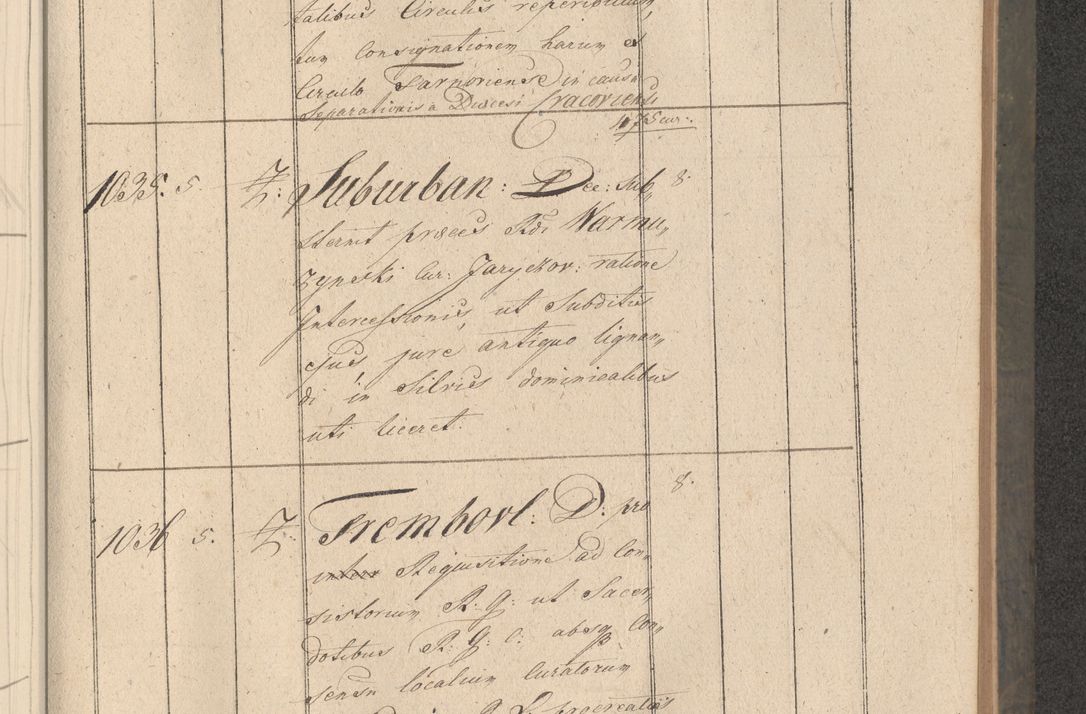 talibus Circulis reperibilium,
tum Consignationem harum ex
Circulo Tarnoviensi in causa
Separationis a Diœcesi Cracoviensi
475 cur:
1035. 5. 7: Suburban: Dec: sub„ 8.
sternit preces Rdi Warmu„
zynski Cur: Jaryczov: ratione
Intercessionis, ut Subditis
ejus jure antiquo lignan„
di in Silvis dominicalibus
uti liceret.
1036 5. 7: Trembovl: D: pro 8.
interr Requisitione ad Con„
sistorium R: G: ut Sacer„
dotibus R: G: C: absq Con„
sensu localium Curatorum
R. L. procreatis